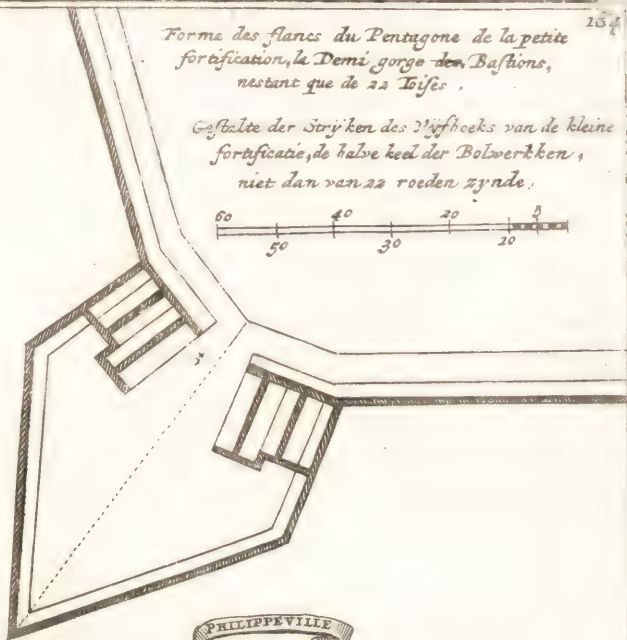 Forme des flancs du Pentagone de la petite
fortification, la Demi gorge des Bastions,
nestant que de 22 Toises.
Gestalte der Stryken des Vyfhoeks van de kleine
fortificatie, de halve keel der Bolwerkken,
niet dan van 22 roeden zynde.
60 40 20 5
50 30 10
PHILIPPEVILLE